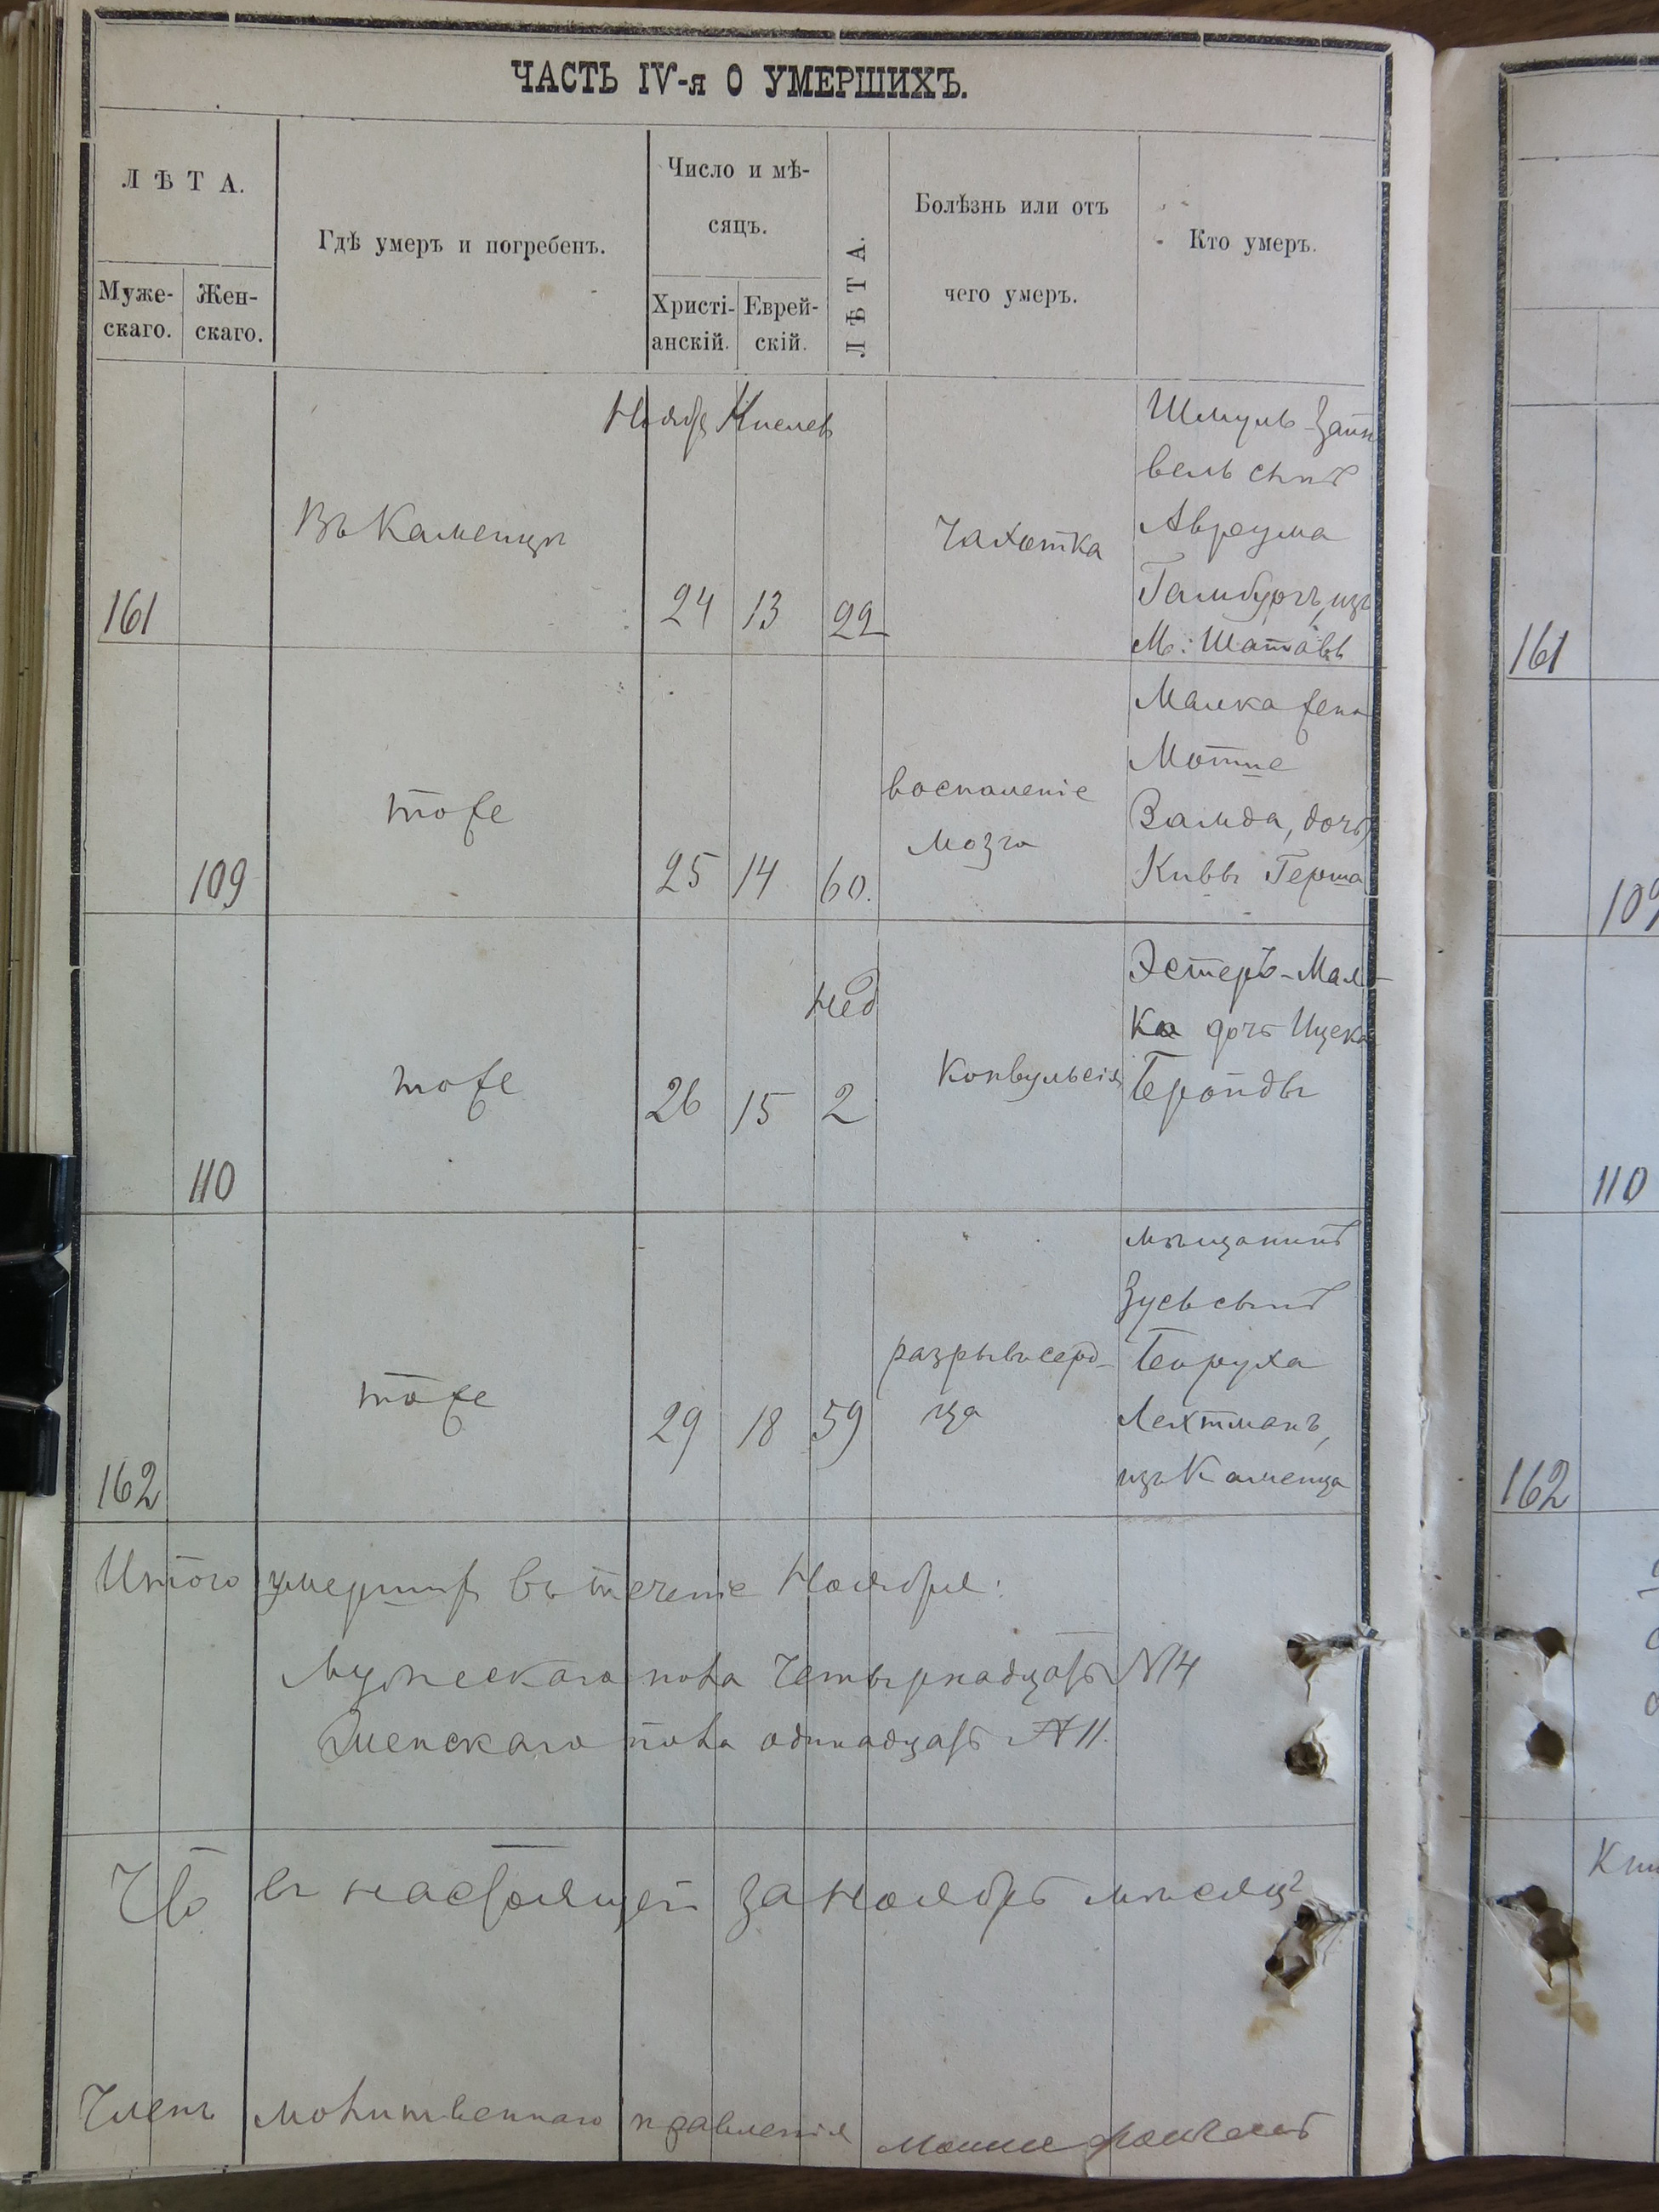 ЧАСТЬ IV-я О УМЕРШИХЪ.
ЛѢТА.
Муже-
скаго.
Жен-
скаго.
Гдѣ умеръ и погребенъ.
Число и мѣ-
сяцъ.
Христі-
анскій.
Еврей-
скій.
ЛѢТА.
Болѣзнь или отъ
чего умеръ.
Кто умеръ.
Ноябр Кислев
161
Въ Каменцѣ
24
13
22
Чахотка
Шмуль-Зайн
вель сынъ
Авраума
Гамбургъ, изъ
м: Шатавы
109
тоже
25
14
60.
воспаленіе
мозга
Малка жена
Мотие
Вамда, дочь
Кивы Герша
110
тоже
26
15
Нед
2
Конвульсія
Эстеръ-Мал-
ка дочь Ицека
162
тоже
29
18
59
разрывъ серд-
ца
мѣщанинъ
Зусь сынъ
Боруха
Лехтманъ,
изъ Каменца
Итого умерших въ теченіе Ноября:
Мужескаго пола Четырнадцать №14
Женскаго пола одинадцать №11.
Что въ настоящей за Ноябрь мѣсяцъ
Членъ молитвеннаго правленія
161
109
110
162